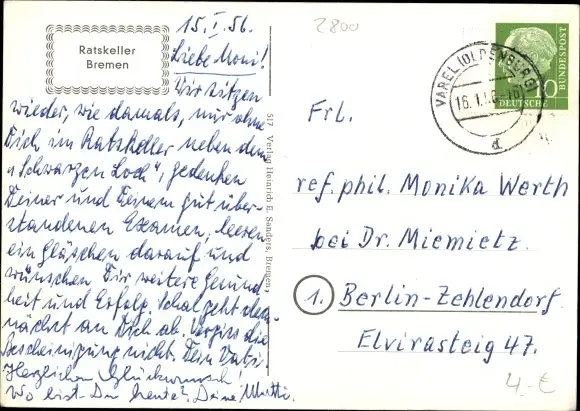 15. I. 56.
2800
Ratskeller
Bremen
Liebe Moni!
Wir sitzen
wieder, wie damals, nur ohne
Dich im Ratskeller neben dem
„Schwarzen Loch", gedenken
Deiner und Deinem gut über-
standenen Examen, leeren
ein Gläschen darauf und
wünschen Dir weitere Gesund-
heit und Erfolg. Schal geht dem-
nächst an Dich ab. Vergiss die
Bescheinigung nicht. Dein Vati.
Herzlichen Glückwunsch!
Wo bist Du heute? Deine Mutti.
517 Verlag Heinrich E. Sanders, Bremen
DEUTSCHE
BUNDESPOST
10
VAREL (OLDENBURG)
d
Frl.
ref. phil. Monika Werth
bei Dr. Miemietz
1. Berlin-Zehlendorf.
Elvirasteig 47.
4.-€